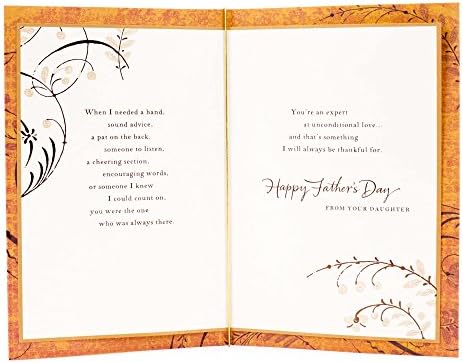 When I needed a hand,
sound advice,
a pat on the back,
someone to listen,
a cheering section,
encouraging words,
or someone I knew
I could count on,
you were the one
who was always there.
You're an expert
at unconditional love...
and that's something
I will always be thankful for.
Happy Father's Day
FROM YOUR DAUGHTER